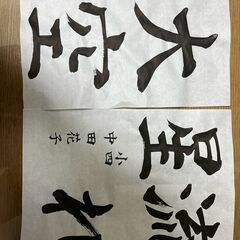 大空
流
星
小四
中田花子